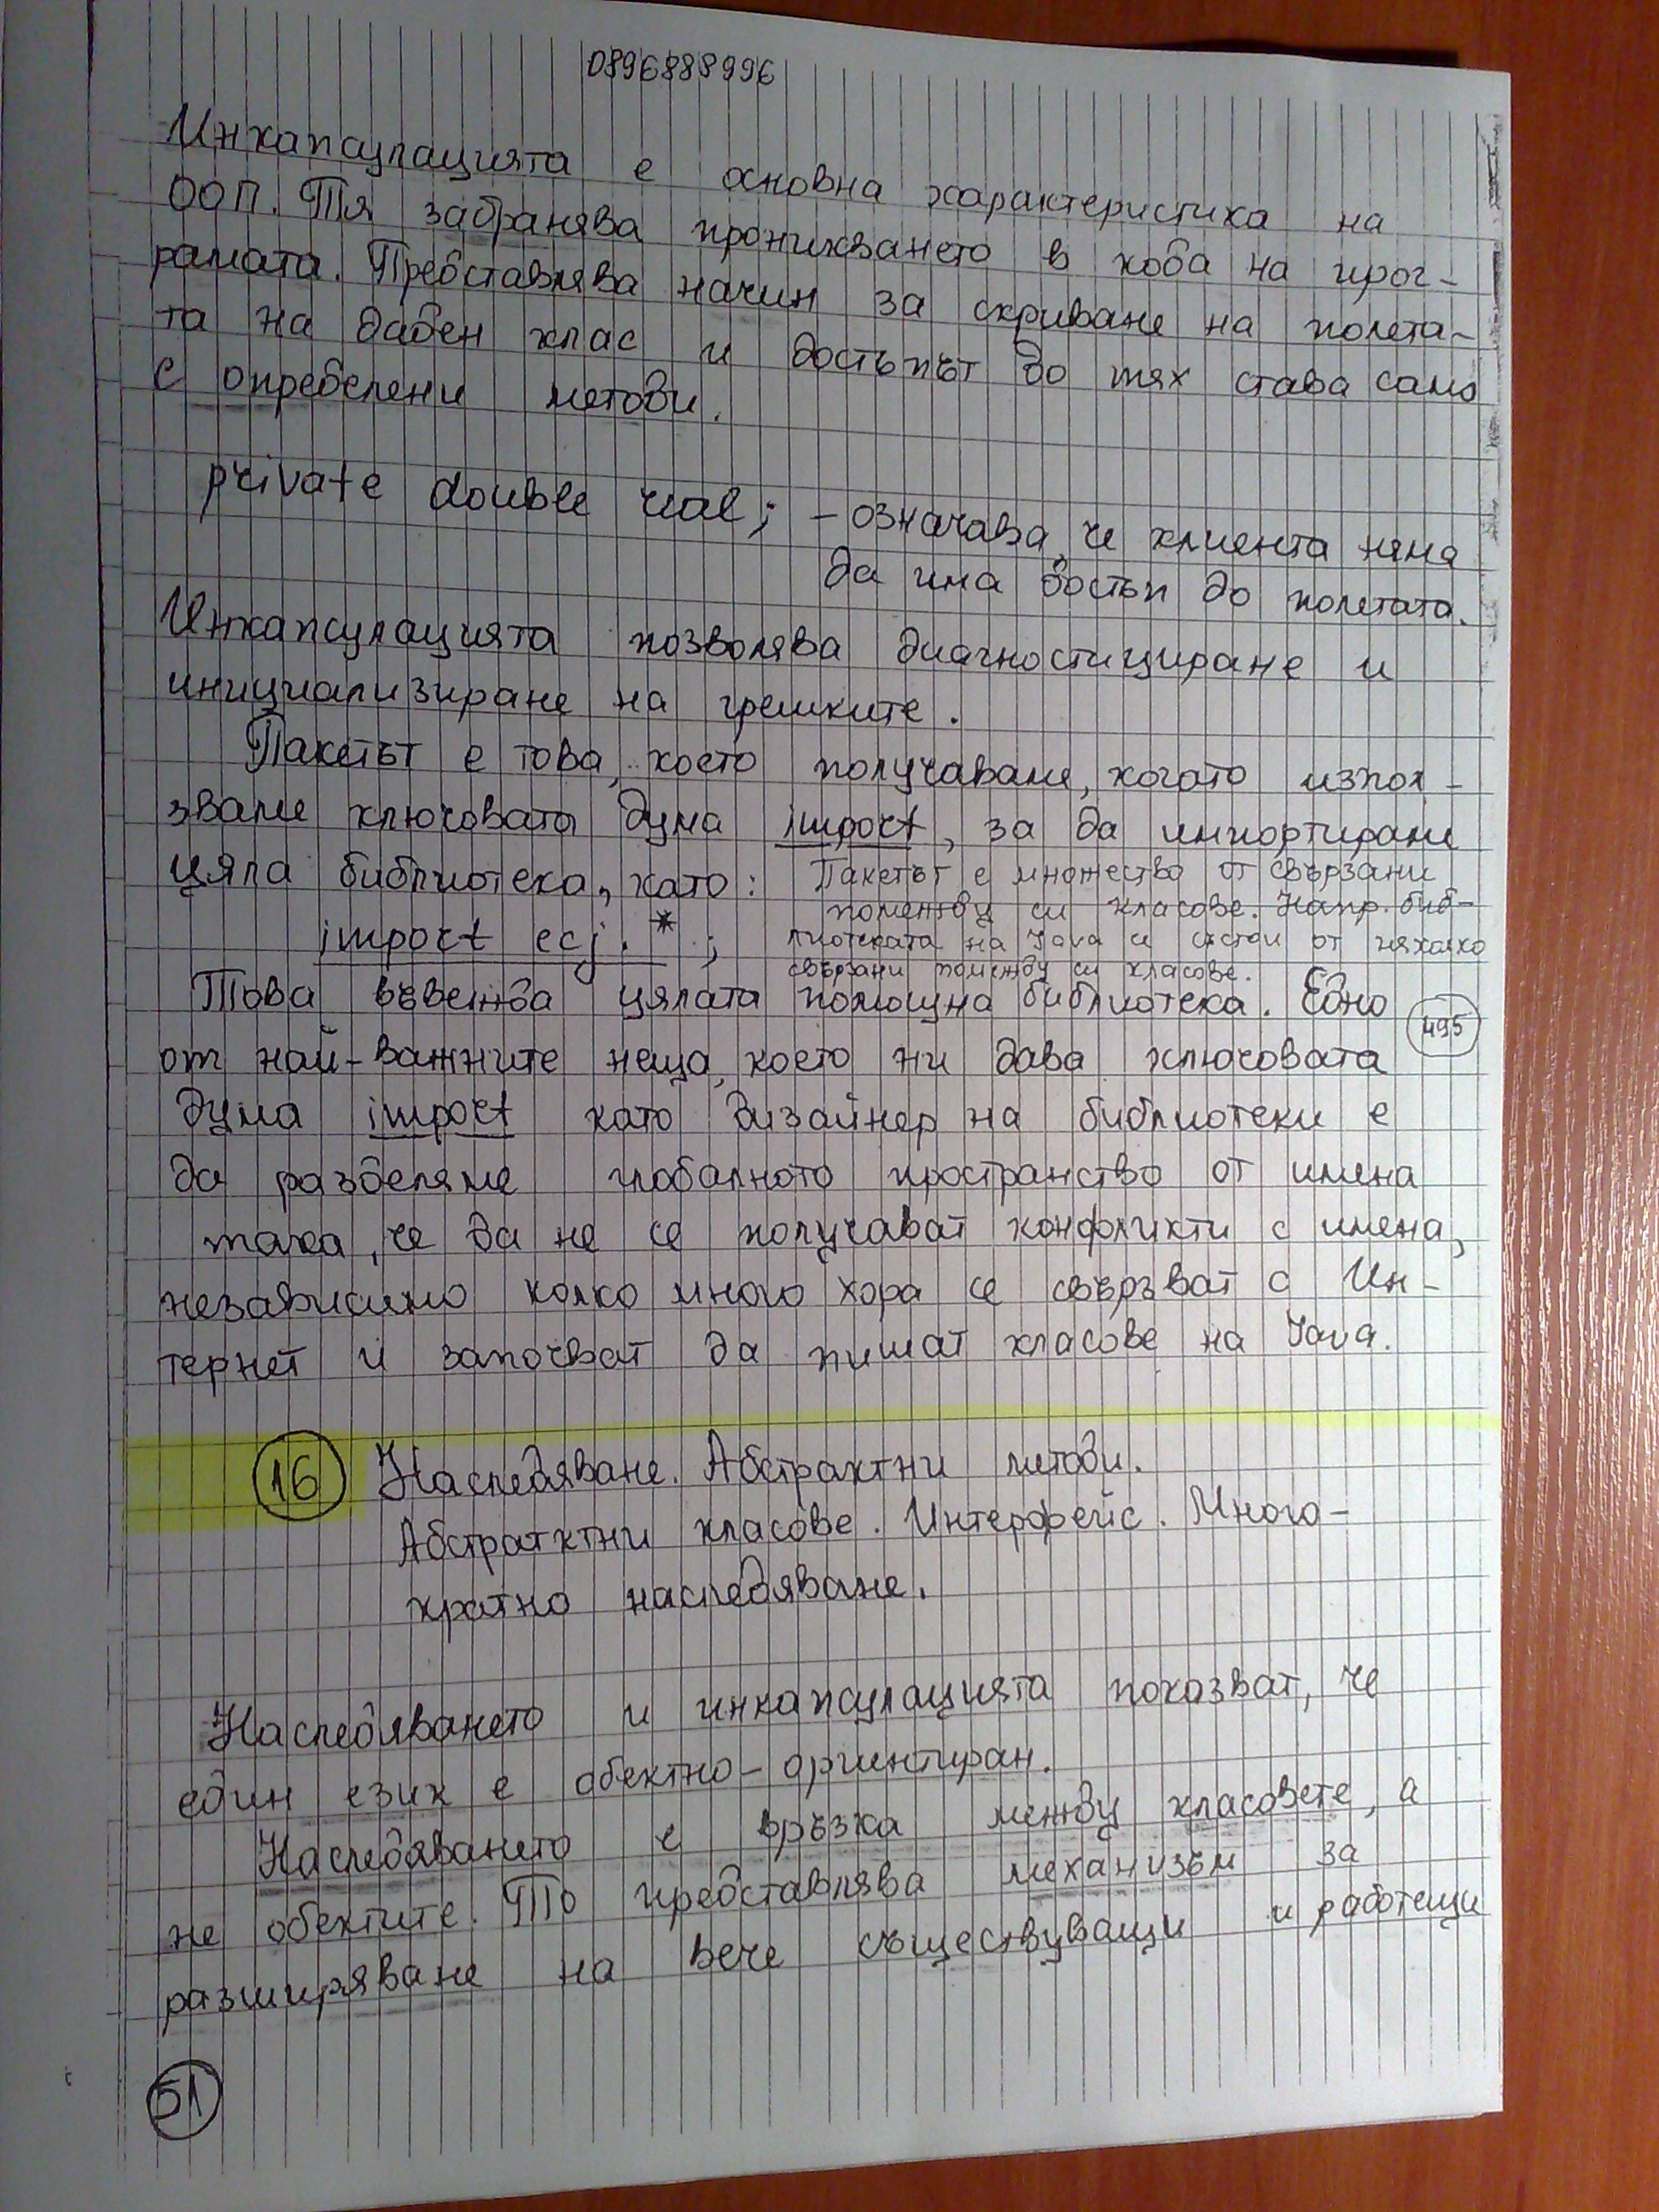 0896888996
Инкапсулацията е основна характеристика на
ООП. Тя забранява проникването в кода на прог-
рамата. Представлява начин за скриване на полета-
та на даден клас и достъпът до тях става само
с определени методи.
private double real; - означава, че клиента няма
да има достъп до полетата.
Инкапсулацията позволява диагностициране и
инициализиране на грешките.
Пакетът е това, което получаваме, когато изпол-
зваме ключовата дума import, за да импортираме
цяла библиотека, като:
import ecj.*;
Пакетът е множество от свързани
помежду си класове. Напр. биб-
лиотеката на Java се състои от няколко
свързани помежду си класове.
Това въвежда цялата помощна библиотека. Едно
495
от най-важните неща, което ни дава ключовата
дума import като дизайнер на библиотеки е
да разделяме глобалното пространство от имена
така, че да не се получават конфликти с имена,
независимо колко много хора се свързват с Ин-
тернет и започват да пишат класове на Java.
16 Наследяване. Абстрактни методи.
Абстратктни класове. Интерфейс. Много-
кратно наследяване.
Наследяването и инкапсулацията показват, че
един език е обектно-ориентиран.
Наследяването е връзка между класовете, а
не обектите. То представлява механизъм за
разширяване на вече съществуващи и работещи
51